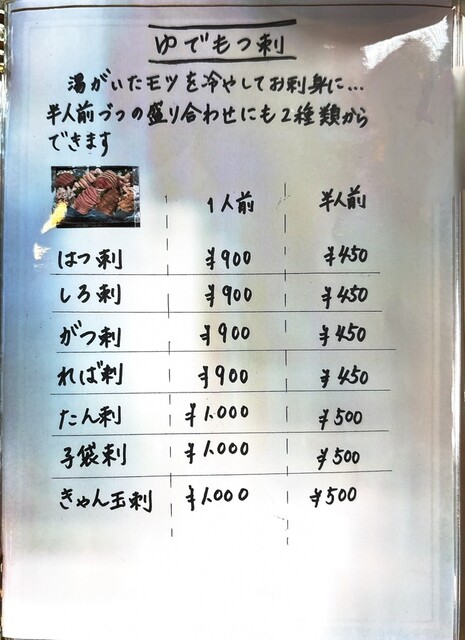 ゆでもつ刺
湯がいたモツを冷やしてお刺身に…
半人前づつの盛り合わせにも2種類から
できます
1人前 半人前
はつ刺 ¥900 ¥450
しろ刺 ¥900 ¥450
がつ刺 ¥900 ¥450
れば刺 ¥900 ¥450
たん刺 ¥1.000 ¥500
子袋刺 ¥1.000 ¥500
きゃん玉刺 ¥1.000 ¥500